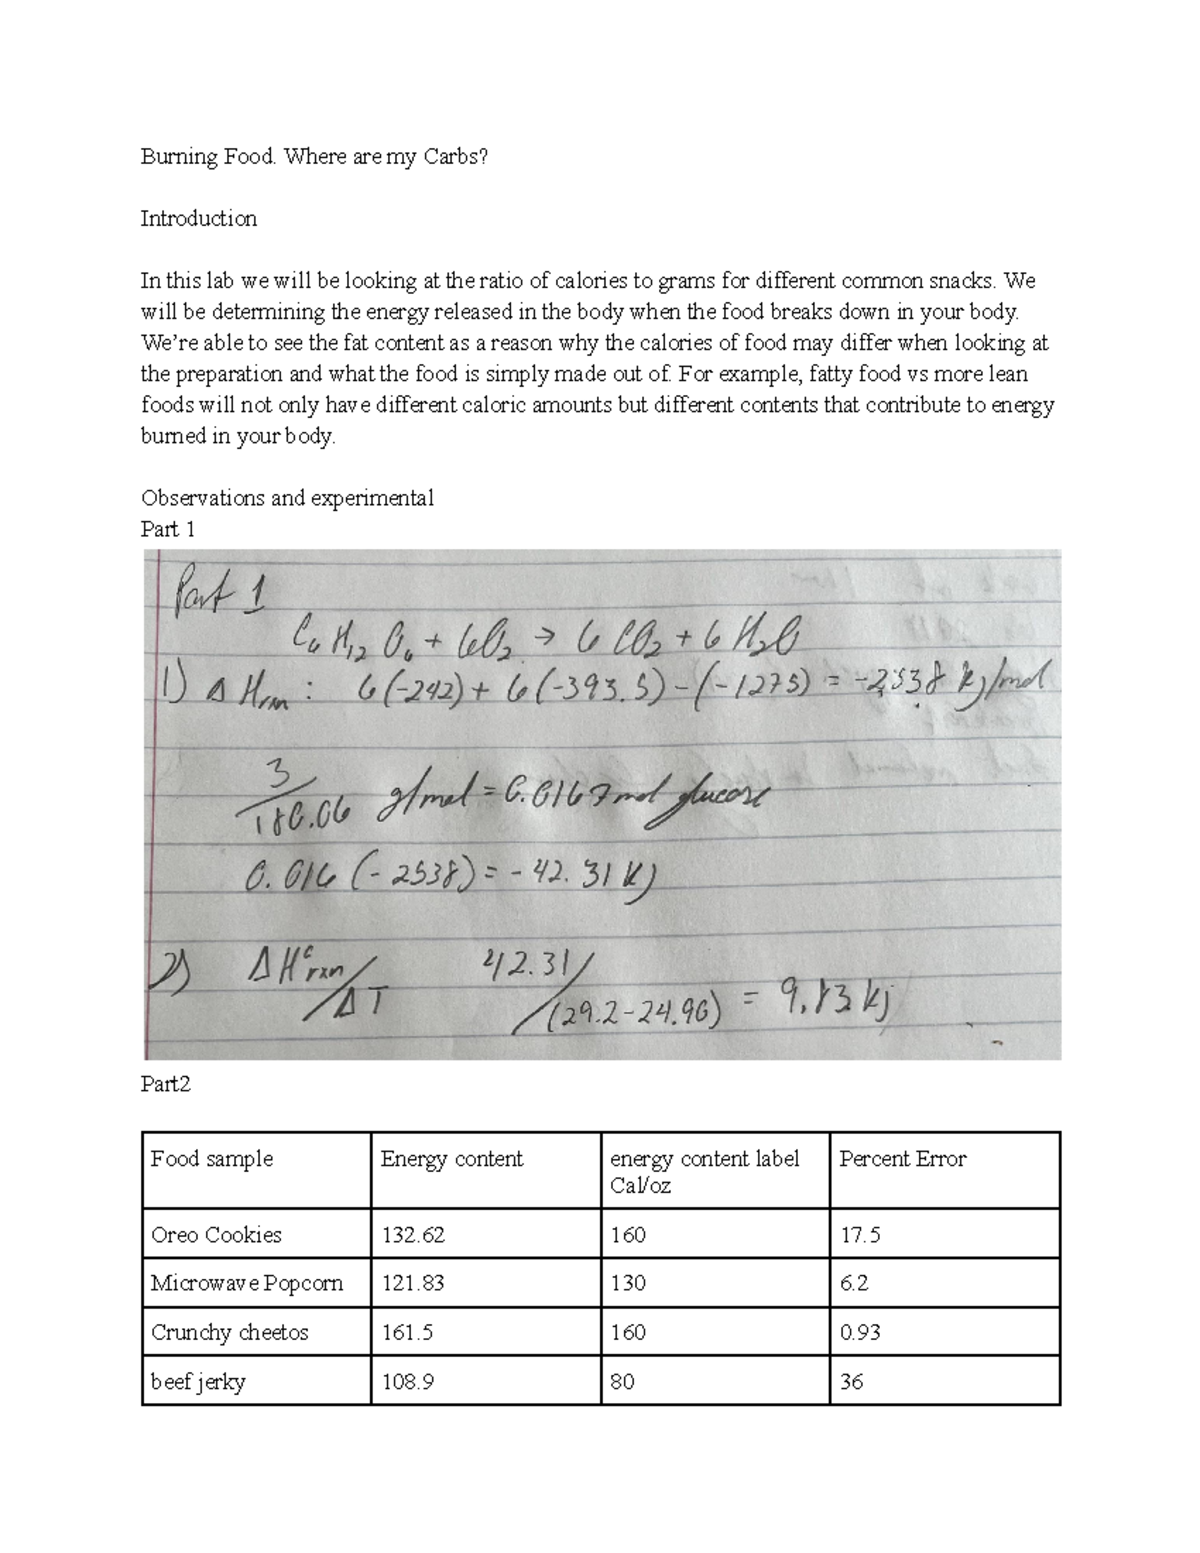 Burning Food. Where are my Carbs?
Introduction
In this lab we will be looking at the ratio of calories to grams for different common snacks. We
will be determining the energy released in the body when the food breaks down in your body.
We're able to see the fat content as a reason why the calories of food may differ when looking at
the preparation and what the food is simply made out of. For example, fatty food vs more lean
foods will not only have different caloric amounts but different contents that contribute to energy
burned in your body.
Observations and experimental
Part 1
Part 1
C6 H12 O6 + 6O2 → 6 CO2 + 6 H2O
1) Δ Hrxn : 6(-242) + 6(-393.5) - (-1275) = -2538 kj/mol
3/180.06 g/mol = 0.0167 mol glucose
0.016 (-2538) = -42.31 kj
2) ΔH°rxn/ΔT 42.31/(29.2-24.96) = 9.83 kj
Part2
Food sample Energy content energy content label Percent Error
Cal/oz
Oreo Cookies 132.62 160 17.5
Microwave Popcorn 121.83 130 6.2
Crunchy cheetos 161.5 160 0.93
beef jerky 108.9 80 36